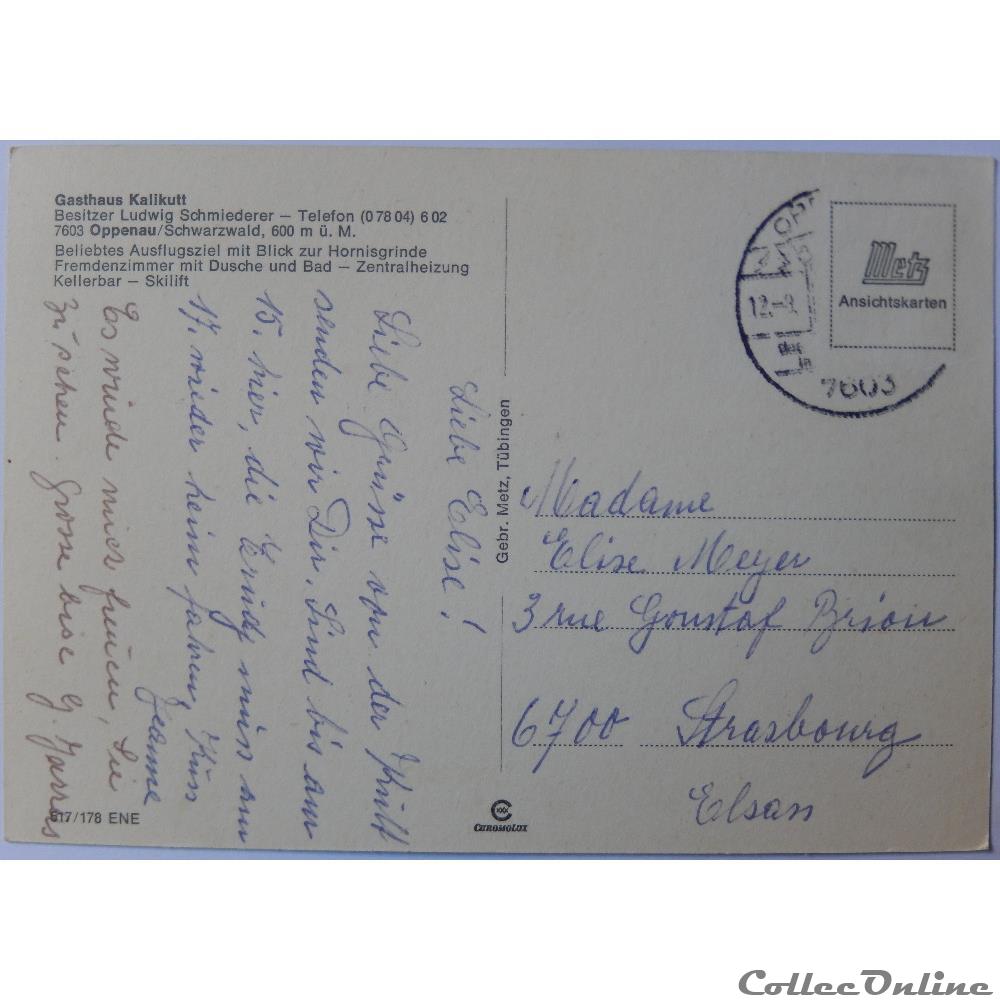 Gasthaus Kalikutt
Besitzer Ludwig Schmiederer — Telefon (0 78 04) 6 02
7603 Oppenau/Schwarzwald, 600 m ü. M.
Beliebtes Ausflugsziel mit Blick zur Hornisgrinde
Fremdenzimmer mit Dusche und Bad — Zentralheizung
Kellerbar — Skilift
Liebe Elise!
Liebe Grüsse von der Kütt
senden wir Dir. Sind bis am
15. hier, die muss am
17. wieder heim fahren, Kuss
Jeanne
Es würde mich freuen, Sie
zu sehen. Grosse bise G.
617/178 ENE
Gebr. Metz, Tübingen
CHROMOLUX
12.
7603
Metz
Ansichtskarten
Madame
Elise Meyer
3 rue Goustaf Brion
6700 Strasbourg
Elsass
CollecOnline